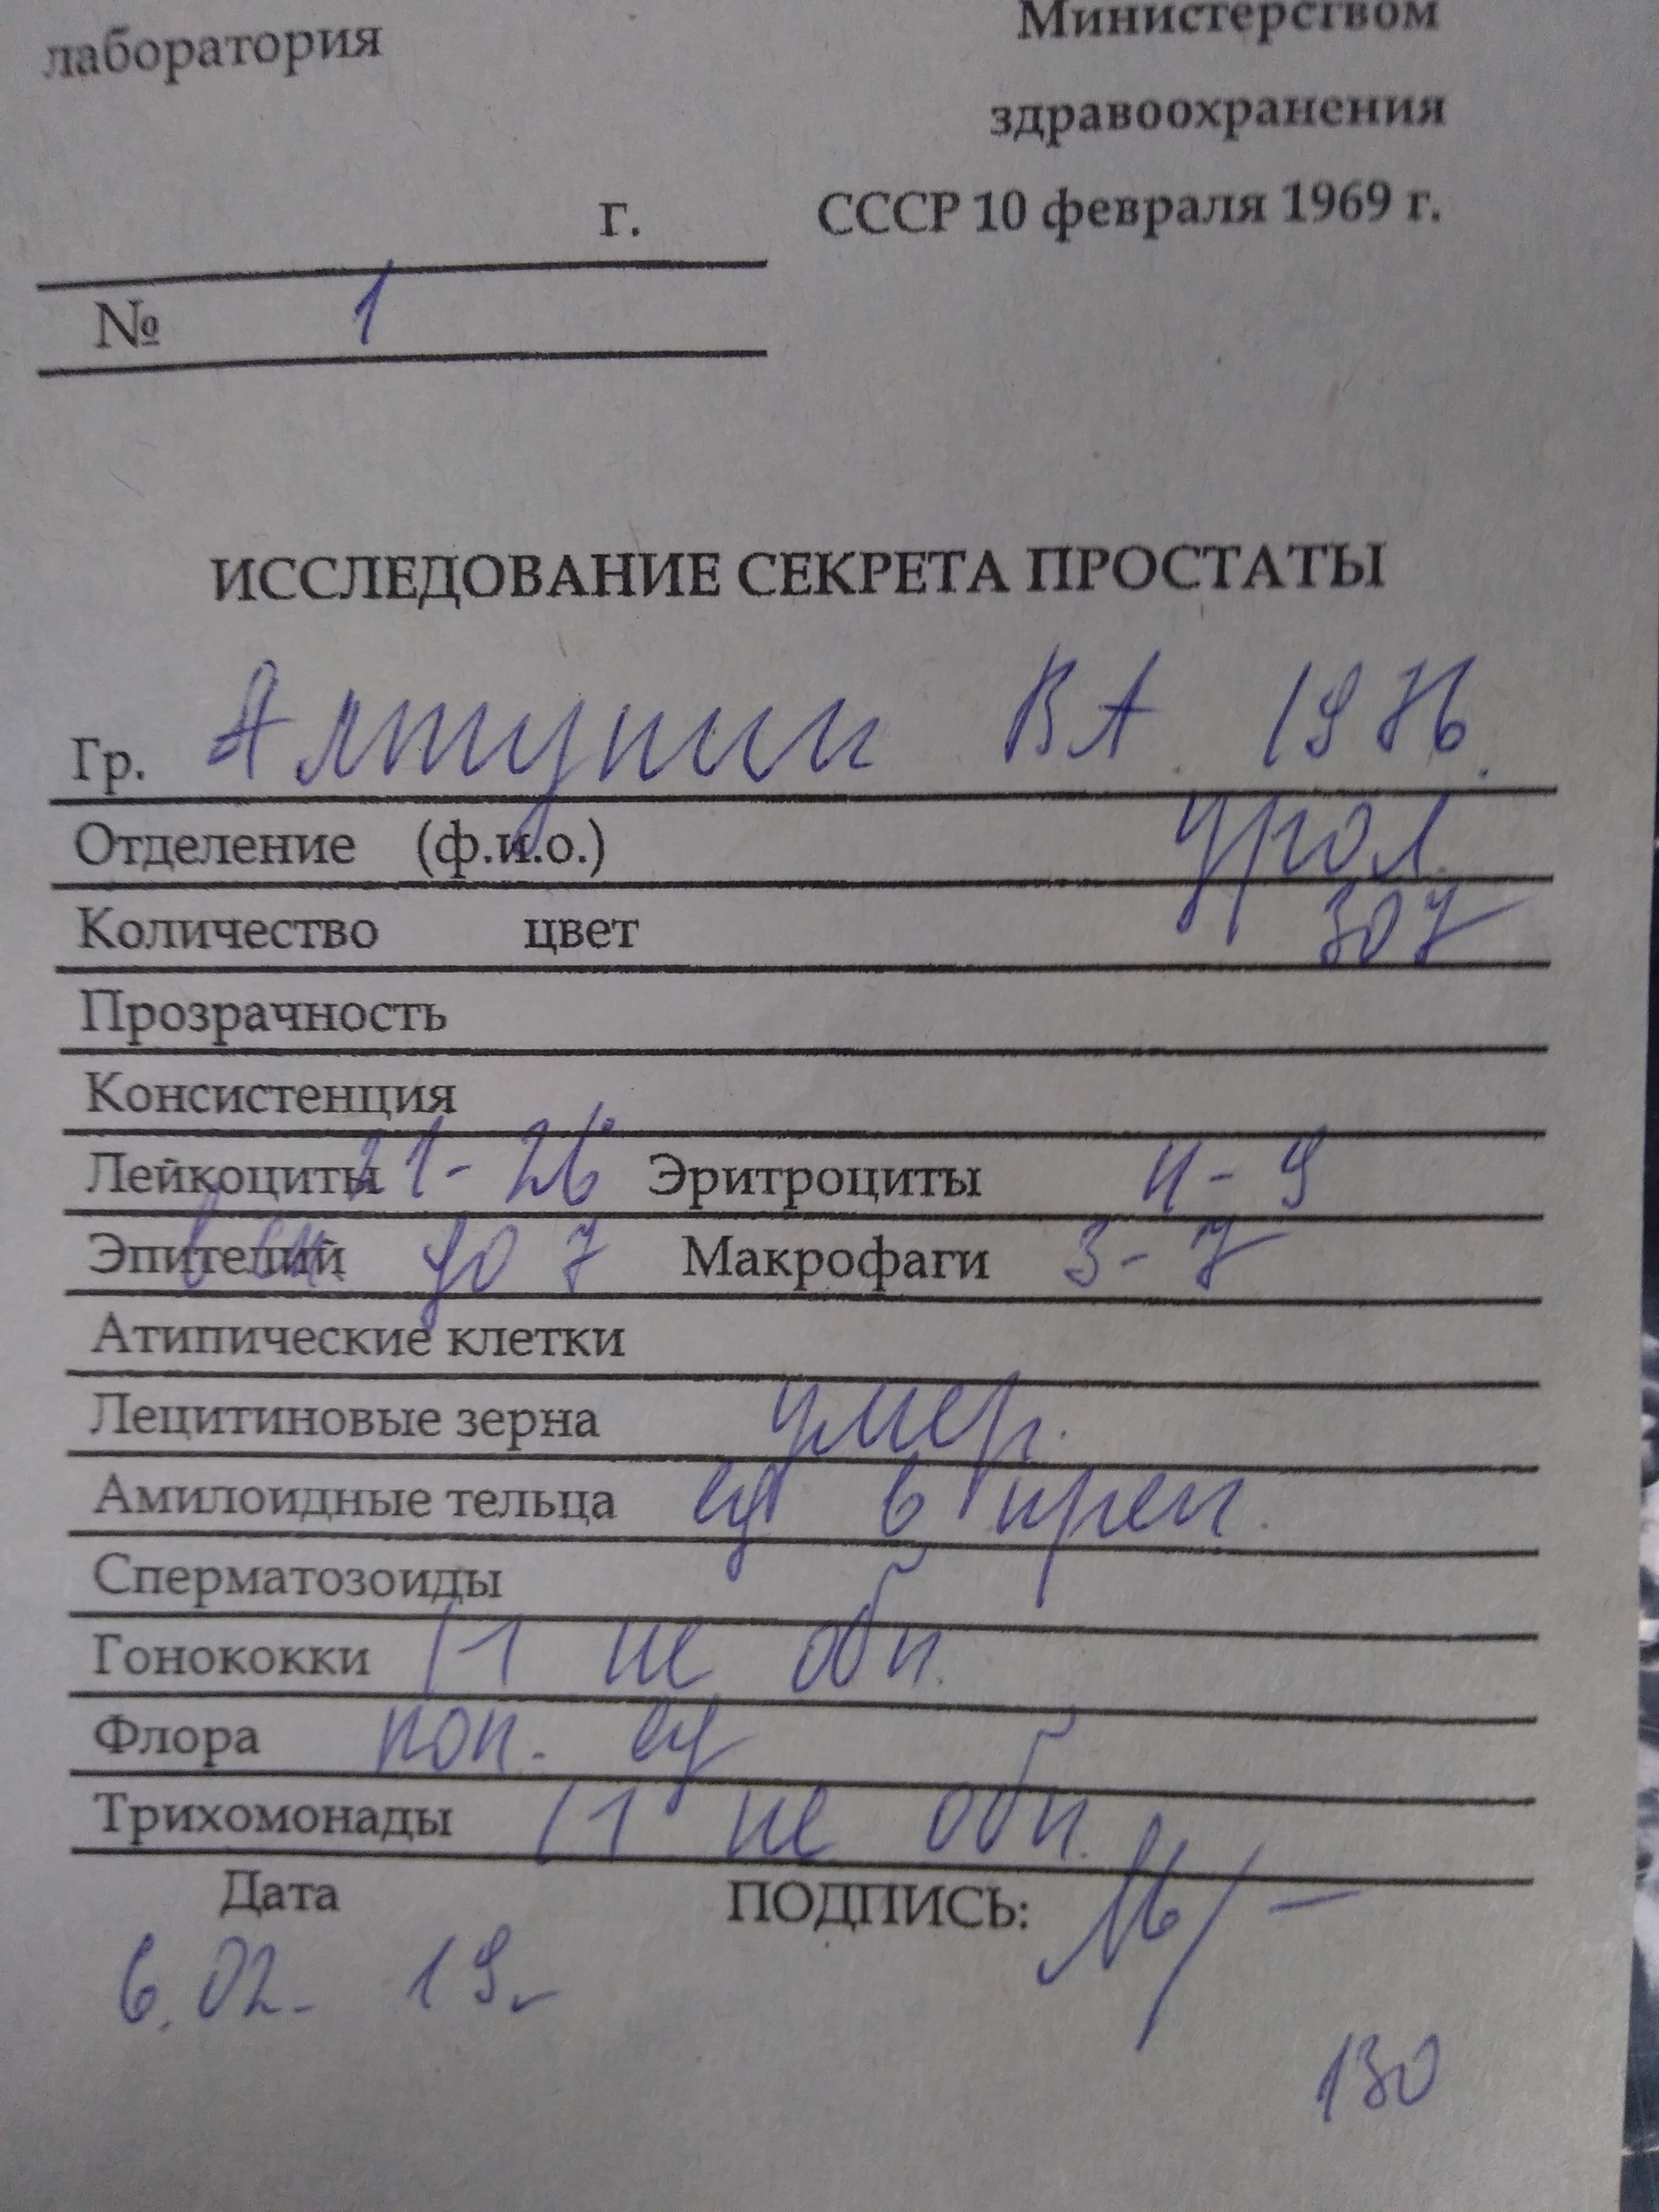 лаборатория
Министерством
здравоохранения
СССР 10 февраля 1969 г.
г.
№ 1
ИССЛЕДОВАНИЕ СЕКРЕТА ПРОСТАТЫ
Гр. Алтунин В А. 1976.
Отделение (ф.и.о.) урол.
Количество цвет 307
Прозрачность
Консистенция
Лейкоциты 21-26 Эритроциты 4-9
Эпителий до 7 Макрофаги 3-7
Атипические клетки
Лецитиновые зерна умер.
Амилоидные тельца ед в преп.
Сперматозоиды
Гонококки не обн.
Флора ед
Трихомонады не обн.
Дата ПОДПИСЬ:
6.02. 19
130